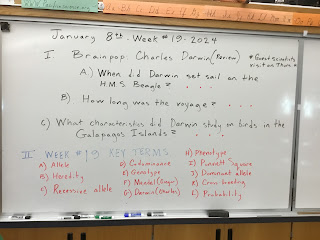 January 8th - Week #19-2024
I. Brainpop: Charles Darwin (Review)
* Guest scientists visit on Thurs *
A) When did Darwin set sail on the H.M.S Beagle? . . . .
B) How long was the voyage? . . . .
C) What characteristics did Darwin study on birds in the Galapagos Islands? . . . .
II WEEK #19 KEY TERMS
A) Allele
B) Heredity
C) Recessive allele
D) Codominance
E) Genotype
F) Mendel (Gregor)
G) Darwin (Charles)
H) Phenotype
I) Punnett Square
J) Dominant allele
K) Cross breeding
L) Probability